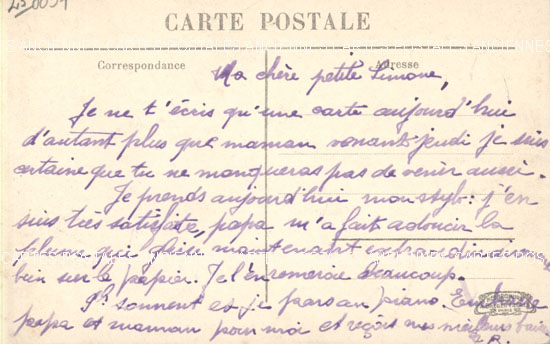 CARTE POSTALE
Correspondance
Adresse
Ma chère petite Simone,
Je ne t'écris qu'une carte aujourd'hui
d'autant plus que maman venant jeudi je suis
certaine que tu ne manqueras pas de venir aussi.
Je prends aujourd'hui mon stylo: j'en
suis très satisfaite, papa m'a fait adoucir la
plume qui glisse maintenant
bien sur le papier. Je l'en remercie beaucoup.
sonnent et je pars au piano. Embrasse
papa et maman pour moi et reçois mes meilleurs baisers